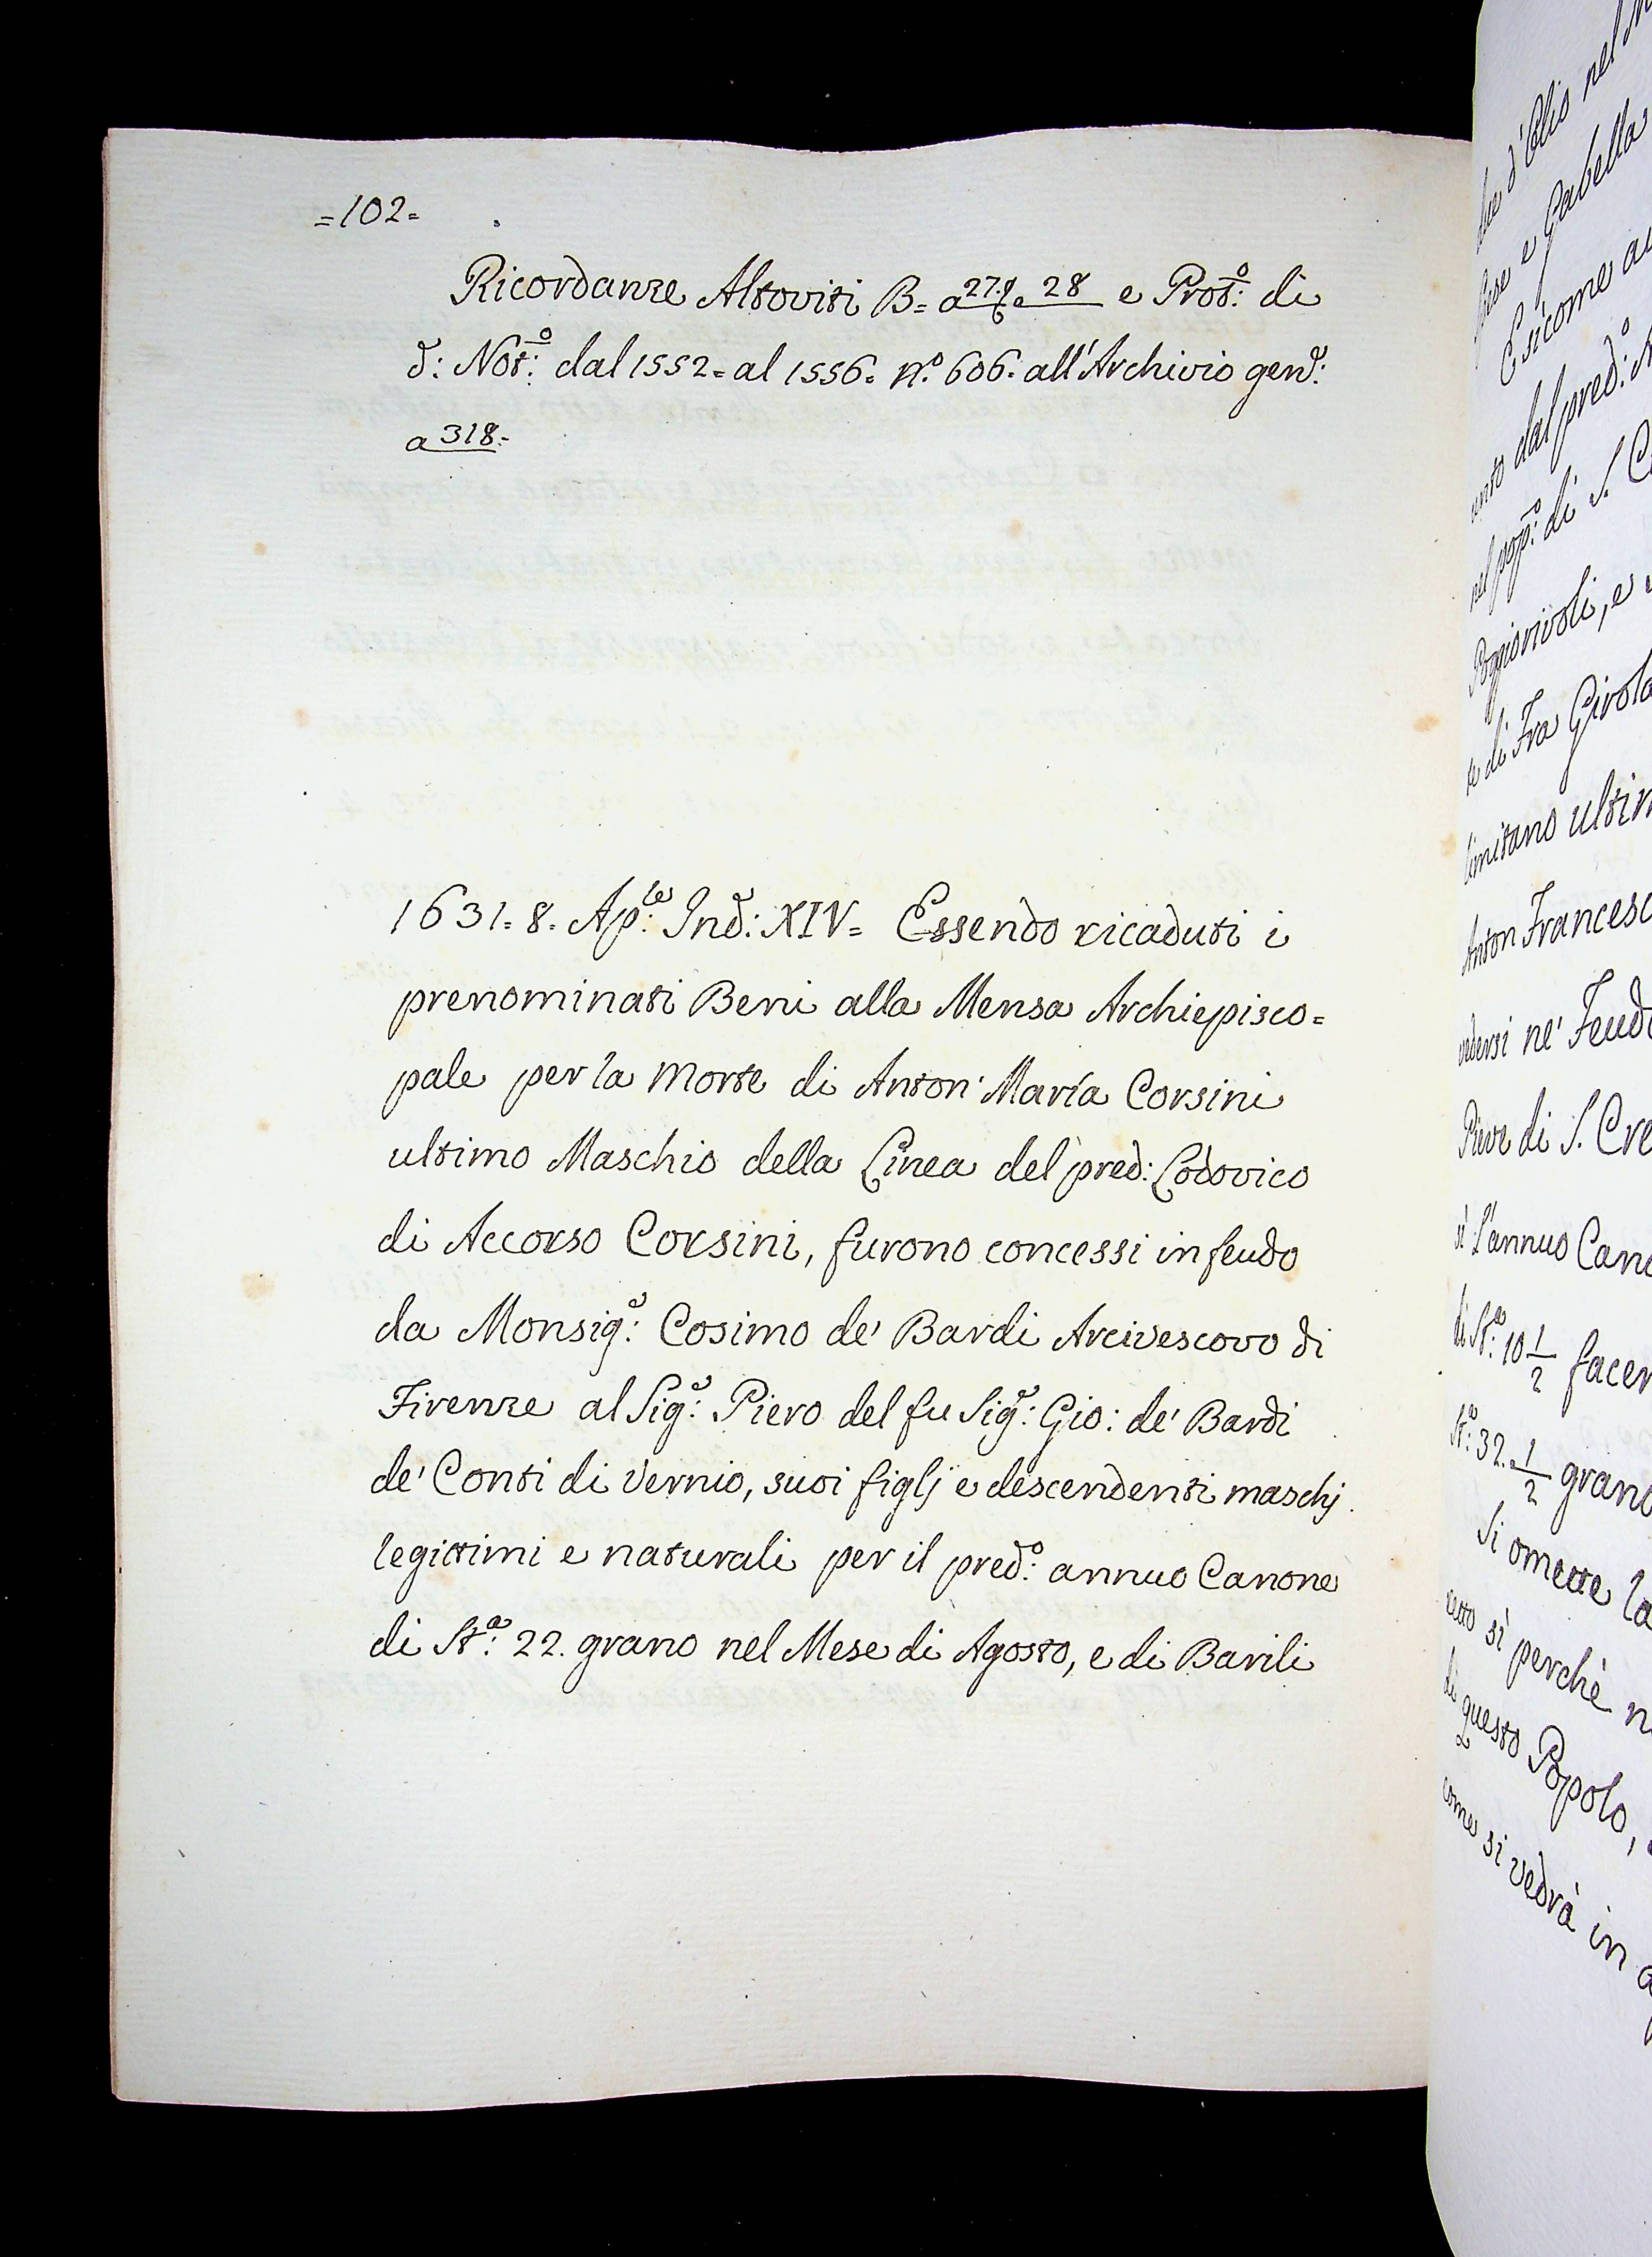 =102=
Ricordanze Altoviti B= a 27. e 28 e Prot:º di
d: Not:º dal 1552= al 1556= Nº 606= all'Archivio gen:e
a 318=
1631= 8. Ap:le Ind: XIV= Essendo ricaduti i
prenominati Beni alla Mensa Archiepisco=
pale per la Morte di Anton' María Corsini
ultimo Maschio della Linea del pred: Lodovico
di Accorso Corsini, furono concessi in feudo
da Monsig:e Cosimo de' Bardi Arcivescovo di
Firenze al Sig:e Piero del fu Sig:e Gio: de' Bardi
de' Conti di Vernio, suoi figlj e descendenti maschj
legittimi e naturali per il pred:º annuo Canone
di St:a 22. grano nel Mese di Agosto, e di Barili
d'Olio nel
e Gabella
Esicome
dal pred:º
nel pop:º di S.
Poggiorivoli, e
di Fra
ultim
Anton Francesc
ne' Feud
Pieve di S. Cre
l'annuo Cano
di St:a 10 1/2 facen
St:a 32. 1/2 grano
Si omette la
sì perchè n
di questo Popolo,
come si vedrà in